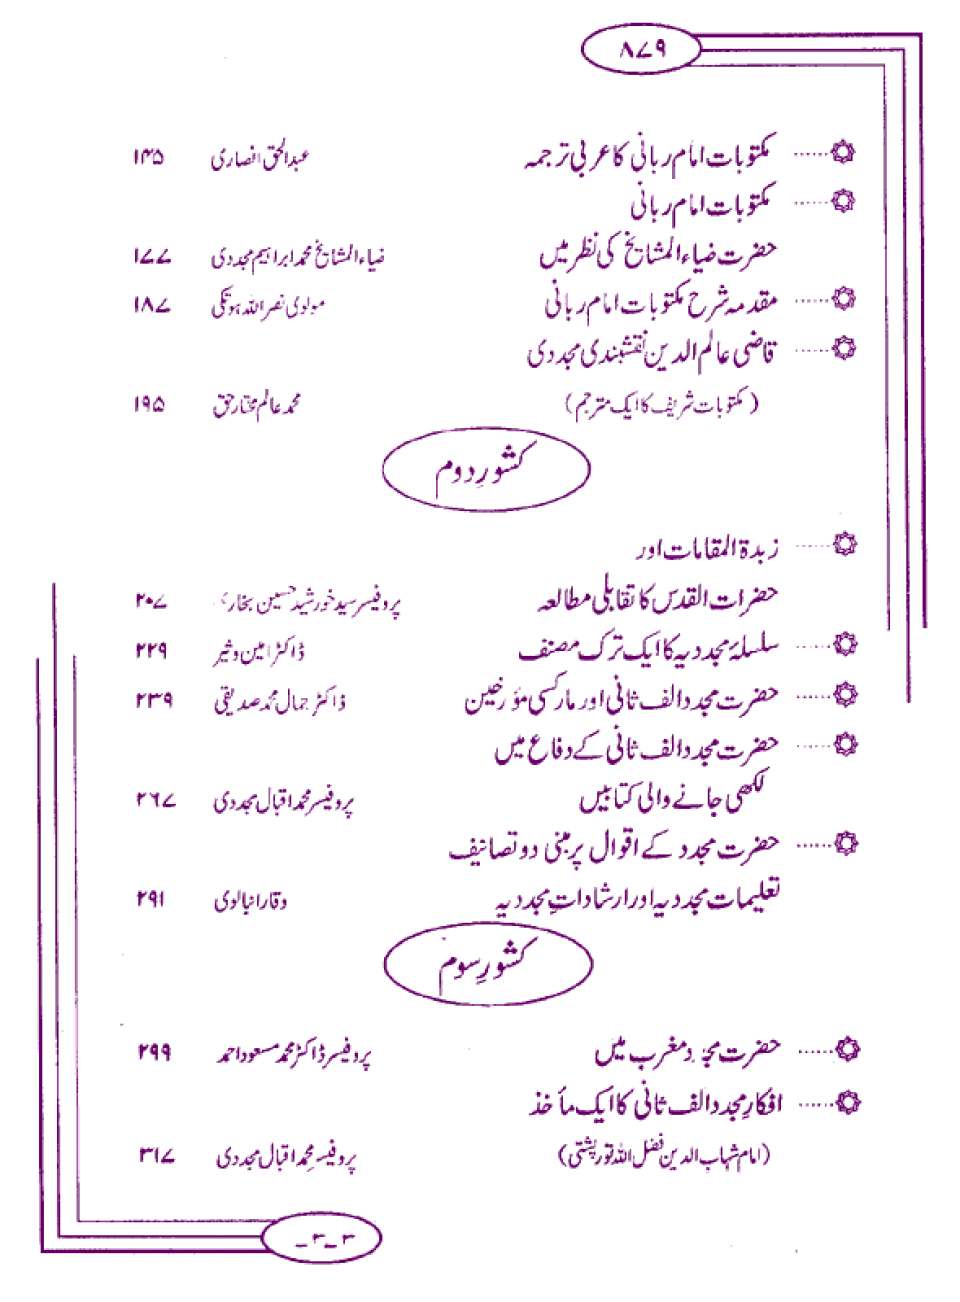 ۸۷۹
مکتوبات امام ربانی کا عربی ترجمہ ...... عبدالحق انصاری ۱۴۵
مکتوبات امام ربانی ......
حضرت ضیاء المشایخ کی نظر میں ضیاء المشایخ محمد ابراہیم مجددی ۱۷۷
مقدمہ شرح مکتوبات امام ربانی ...... مولوی نصر اللہ ہوتکی ۱۸۷
قاضی عالم الدین نقشبندی مجددی ......
(مکتوبات شریف کا ایک مترجم) محمد عالم مختار حق ۱۹۵
کشورِ دوم
زبدۃ المقامات اور ......
حضرات القدس کا تقابلی مطالعہ پروفیسر سید خورشید حسین بخاری ۲۰۷
سلسلۂ مجددیہ کا ایک ترک مصنف ...... ڈاکٹر امین وثیر ۲۲۹
حضرت مجدد الف ثانی اور مارکسی مؤرخین ...... ڈاکٹر جمال محمد صدیقی ۲۳۹
حضرت مجدد الف ثانی کے دفاع میں ......
لکھی جانے والی کتابیں پروفیسر محمد اقبال مجددی ۲۶۷
حضرت مجدد کے اقوال پر مبنی دو تصانیف ......
تعلیمات مجددیہ اور ارشاداتِ مجددیہ وقار انبالوی ۲۹۱
کشورِ سوم
حضرت مجدد مغرب میں ...... پروفیسر ڈاکٹر محمد مسعود احمد ۲۹۹
افکارِ مجدد الف ثانی کا ایک مأخذ ......
(امام شہاب الدین فضل اللہ تورپشتی) پروفیسر محمد اقبال مجددی ۳۱۷
۳-۳-